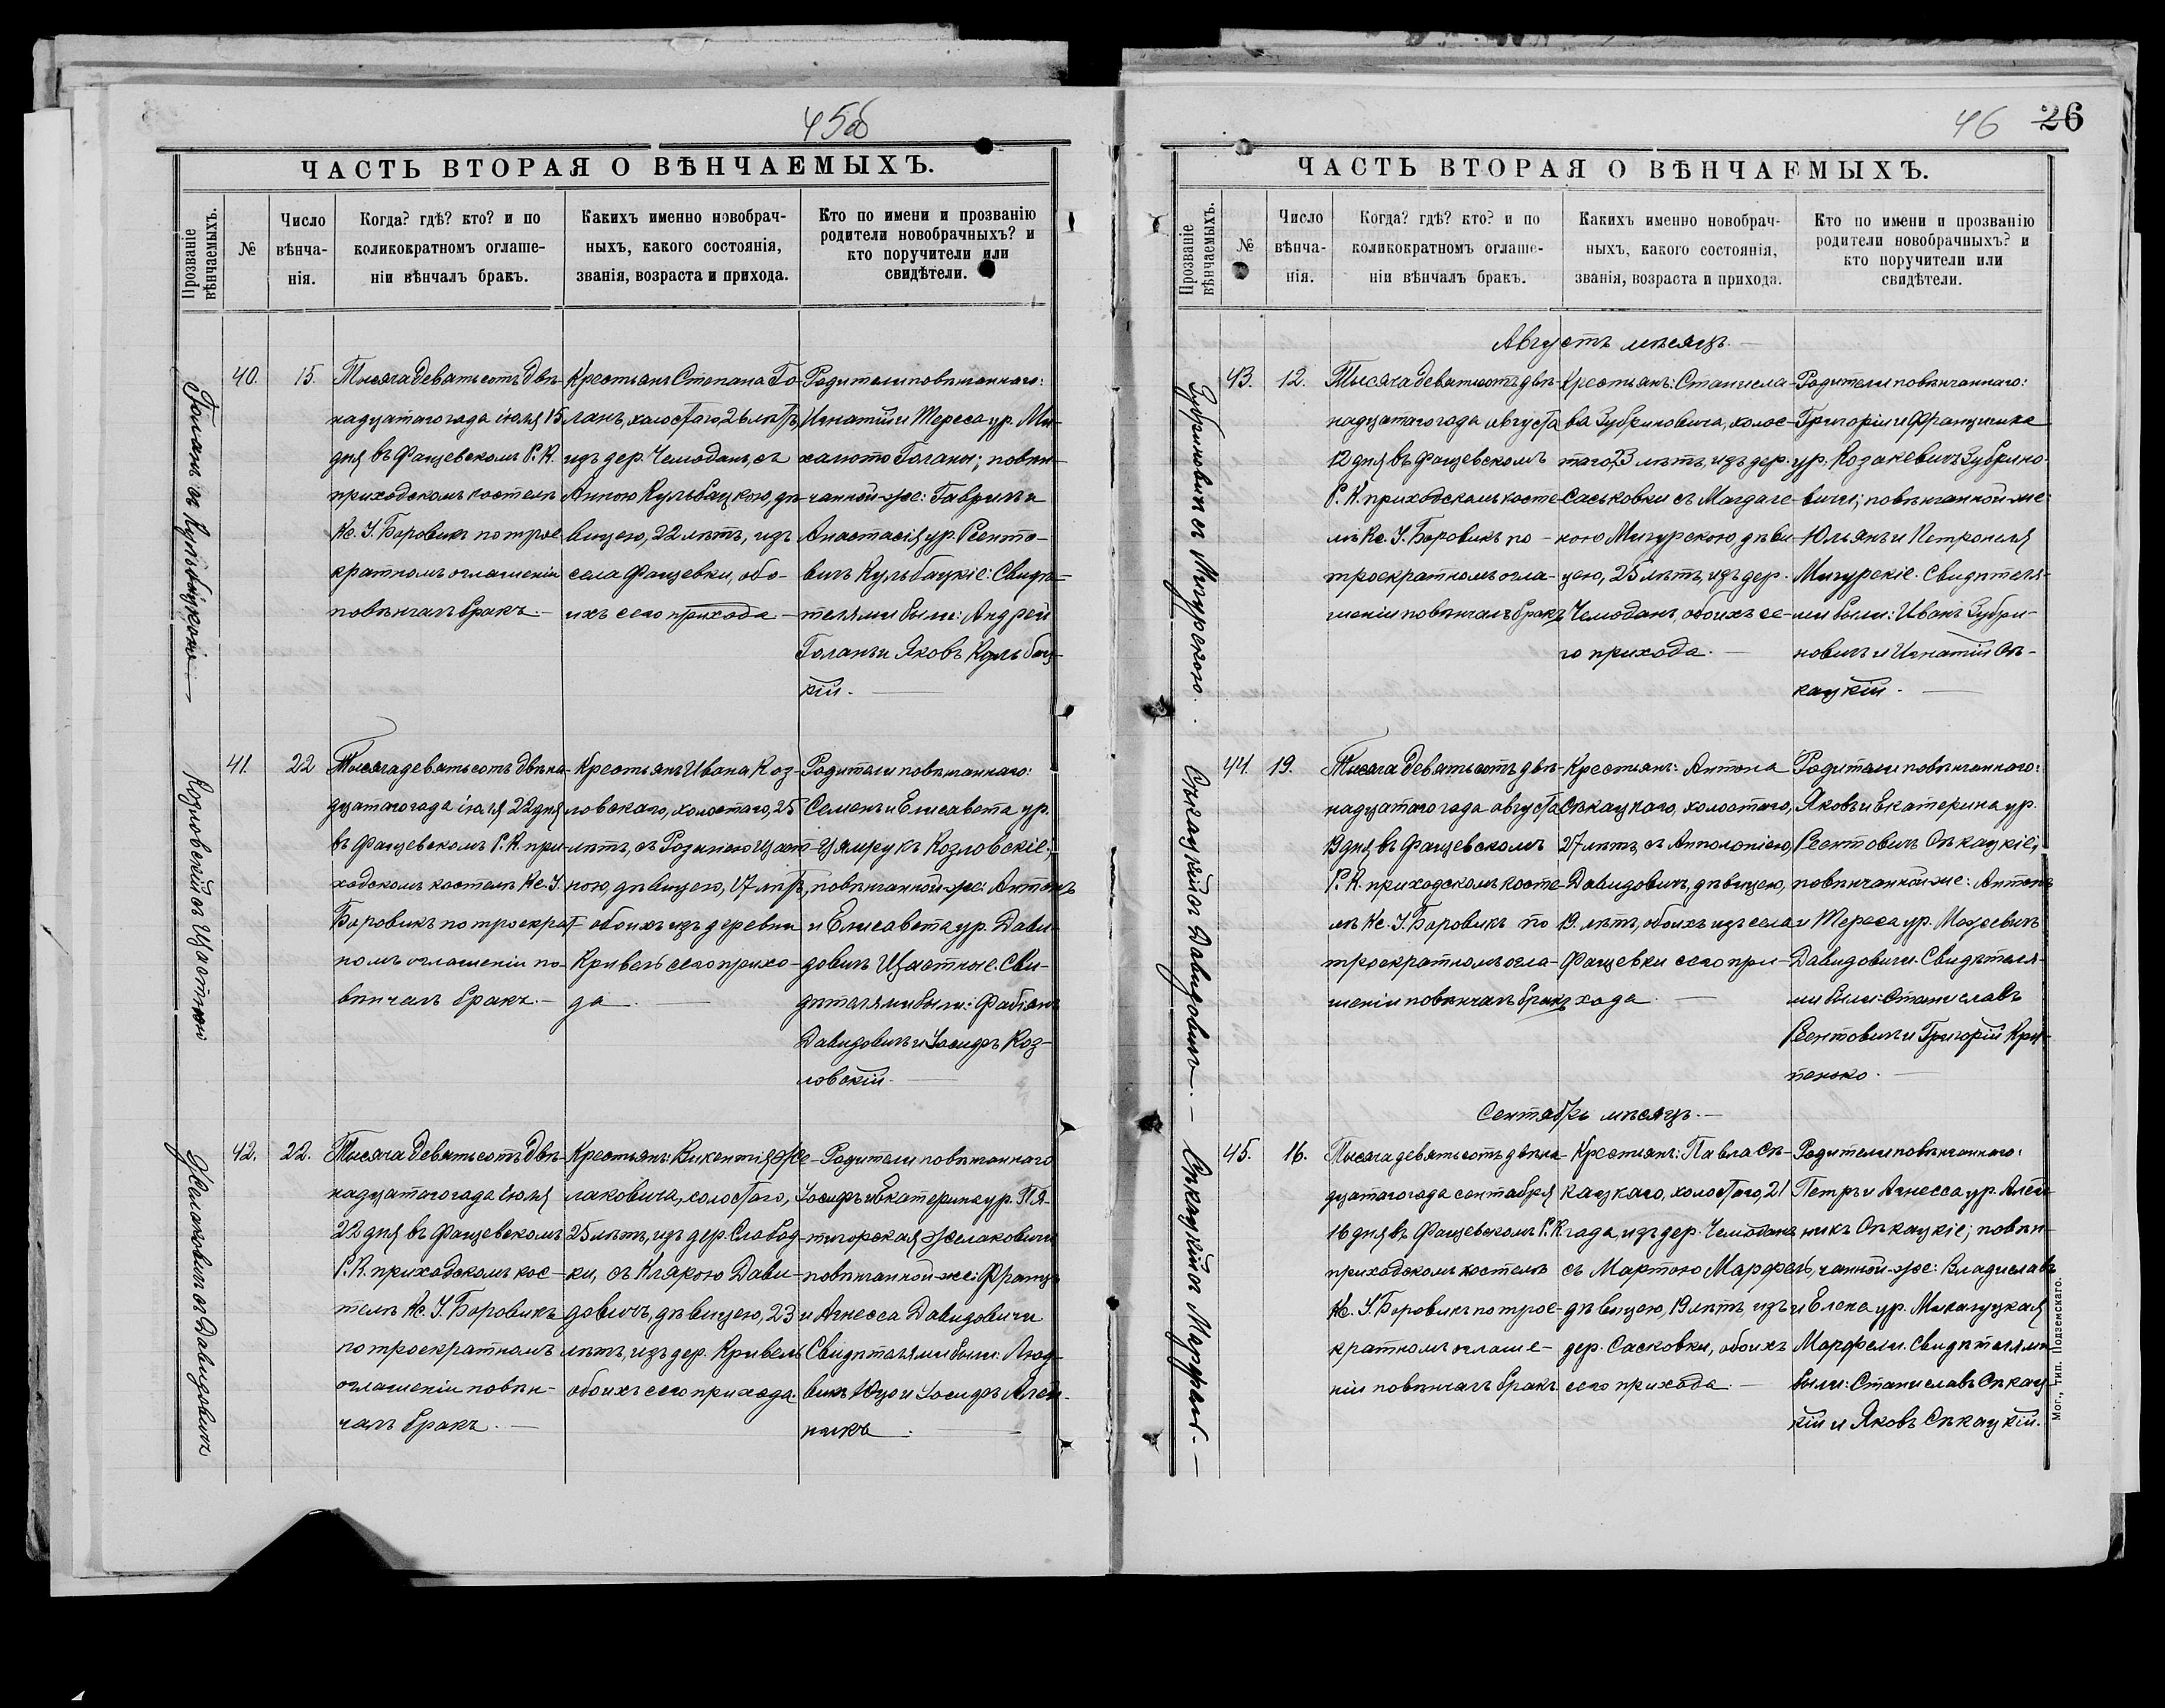 45об
ЧАСТЬ ВТОРАЯ О ВѢНЧАЕМЫХЪ.
Прозваніе вѣнчаемыхъ.
№
Число вѣнча-нія.
Когда? гдѣ? кто? и по
коликократномъ оглаше-
ніи вѣнчалъ бракъ.
Какихъ именно новобрач-
ныхъ, какого состоянія,
званія, возраста и прихода.
Кто по имени и прозванію
родители новобрачныхъ? и
кто поручители или
свидѣтели.
Голанъ съ Кульбацкою
40.
15.
Тысяча девятьсотъ двѣ-
надцатаго года іюля 15
дня въ Фащевскомъ Р. К.
приходскомъ костелѣ
Кс. І. Боровикъ по трое
кратномъ оглашеніи
повѣнчалъ бракъ. —
Крестьянъ Степана Го-
ланъ, холостаго, 26 лѣтъ,
изъ дер. Чемоданъ, съ
Анною Кульбацкою, дѣ-
вицею, 22 лѣтъ, изъ
села Фащевки, обо-
ихъ сего прихода —
Родители повѣнчаннаго:
Игнатій и Тереса ур. Ми-
халюто Голаны; повѣн-
чанной-же: Гаврилъ и
Анастасія ур. Реенто-
вичъ Кульбацкіе: Свидѣ-
телями были: Андрей
Голанъ и Яковъ Кульбац-
кій. —
Козловскій съ Щастною
41.
22
Тысяча девятьсотъ двѣна-
дцатаго года іюля 22 дня
въ Фащевскомъ Р. К. при-
ходскомъ костелѣ Кс. І.
Боровикъ по троекрат-
номъ оглашеніи по-
вѣнчалъ бракъ. —
Крестьянъ Ивана Коз-
ловскаго, холостаго, 25
лѣтъ, съ Розаліею Щаст-
ною, дѣвицею, 17 лѣтъ,
обоихъ изъ деревни
Кривель сего прихо-
да. —
Родители повѣнчаннаго:
Семенъ и Елисавета ур.
Цямрукъ Козловскіе;
повѣнчанной-же: Антонъ
и Елисавета ур. Дави-
довичъ Щастные. Сви-
дѣтелями были: Фабіанъ
Давидовичъ и Іосифъ Коз-
ловскій. —
Желаковичъ съ Давидовичъ
42.
22.
Тысяча девятьсотъ двѣ-
надцатаго года іюля
22 дня въ Фащевскомъ
Р. К. приходскомъ кос-
телѣ Кс. І. Боровикъ
по троекратномъ
оглашеніи повѣн-
чалъ бракъ. —
Крестьянъ: Викентія Же-
лаковича, холостаго,
25 лѣтъ, изъ дер. Слобод-
ки, съ Клярою Дави-
довичъ, дѣвицею, 23
лѣтъ, изъ дер. Кривель
обоихъ сего прихода.
Родители повѣнчаннаго
Іосифъ и Екатерина ур. Пя-
тигорская Желаковичи
повѣнчанной-же: Францъ
и Агнесса Давидовичи
Свидѣтелями были: Люд-
викъ Юцо и Іосифъ Алей-
никъ. —
46 26
ЧАСТЬ ВТОРАЯ О ВѢНЧАЕМЫХЪ.
Прозваніе вѣнчаемыхъ.
№
Число вѣнча-нія.
Когда? гдѣ? кто? и по
коликократномъ оглаше-
ніи вѣнчалъ бракъ.
Какихъ именно новобрач-
ныхъ, какого состоянія,
званія, возраста и прихода.
Кто по имени и прозванію
родители новобрачныхъ? и
кто поручители или
свидѣтели.
Августъ мѣсяцъ. —
Зубриновичъ съ Мигурскою.
43.
12.
Тысяча девятьсотъ двѣ-
надцатаго года августа
12 дня въ Фащевскомъ
Р. К. приходскомъ косте-
лѣ Кс. І. Боровикъ по
троекратномъ огла-
шеніи повѣнчалъ бракъ
Крестьянъ: Станисла-
ва Зубриновича, холос-
таго, 23 лѣтъ, изъ дер.
Саськовки съ Магдале-
ною Мигурскою, дѣви-
цею, 25 лѣтъ, изъ дер.
Чемоданъ, обоихъ се-
го прихода. —
Родители повѣнчаннаго:
Григорій и Францишка
ур. Козакевичъ Зубрино-
вичи; повѣнчанной-же:
Юльянъ и Петронеля
Мигурскіе. Свидѣтеля-
ми были: Иванъ Зубри-
новичъ и Игнатій Оѣ-
кацкій. —
Оѣкацкій съ Давидовичъ. —
44.
19.
Тысяча девятьсотъ двѣ-
надцатаго года августа
19 дня въ Фащевскомъ
Р. К. приходскомъ косте-
лѣ Кс. І. Боровикъ по
троекратномъ огла-
шеніи повѣнчалъ бракъ
Крестьянъ: Антона
Сѣкацкаго, холостаго,
27 лѣтъ, съ Апполоніею
Давидовичъ, дѣвицею,
19. лѣтъ, обоихъ изъ села
Фащевки сего при-
хода. —
Родители повѣнчаннаго:
Яковъ и Екатерина ур.
Реентовичъ Сѣкацкіе;
повѣнчанной-же: Антонъ
и Тереса ур. Мацкевичъ
Давидовичи. Свидѣтеля-
ми были: Станиславъ
Реентовичъ и Григорій Кри-
пенько. —
Сентябрь мѣсяцъ. —
Сѣкацкій съ Марфель. —
45.
16.
Тысяча девятьсотъ двѣна-
дцатаго года сентября
16 дня въ Фащевскомъ Р. К.
приходскомъ костелѣ
Кс. І. Боровикъ по трое-
кратномъ оглаше-
ніи повѣнчалъ бракъ
Крестьянъ: Павла Сѣ-
кацкаго, холостаго, 21
года, изъ дер. Чемоданъ
съ Мартою Марфель,
дѣвицею, 19 лѣтъ, изъ
дер. Сасковки, обоихъ
сего прихода. —
Родители повѣнчаннаго:
Петръ и Агнесса ур. Алей-
никъ Сѣкацкіе; повѣн-
чанной-же: Владиславъ
и Елена ур. Микалуцкая
Марфели. Свидѣтелями
были: Станиславъ Сѣкац-
кій и Яковъ Сѣкацкій.
Мог., тип. Подземскаго.